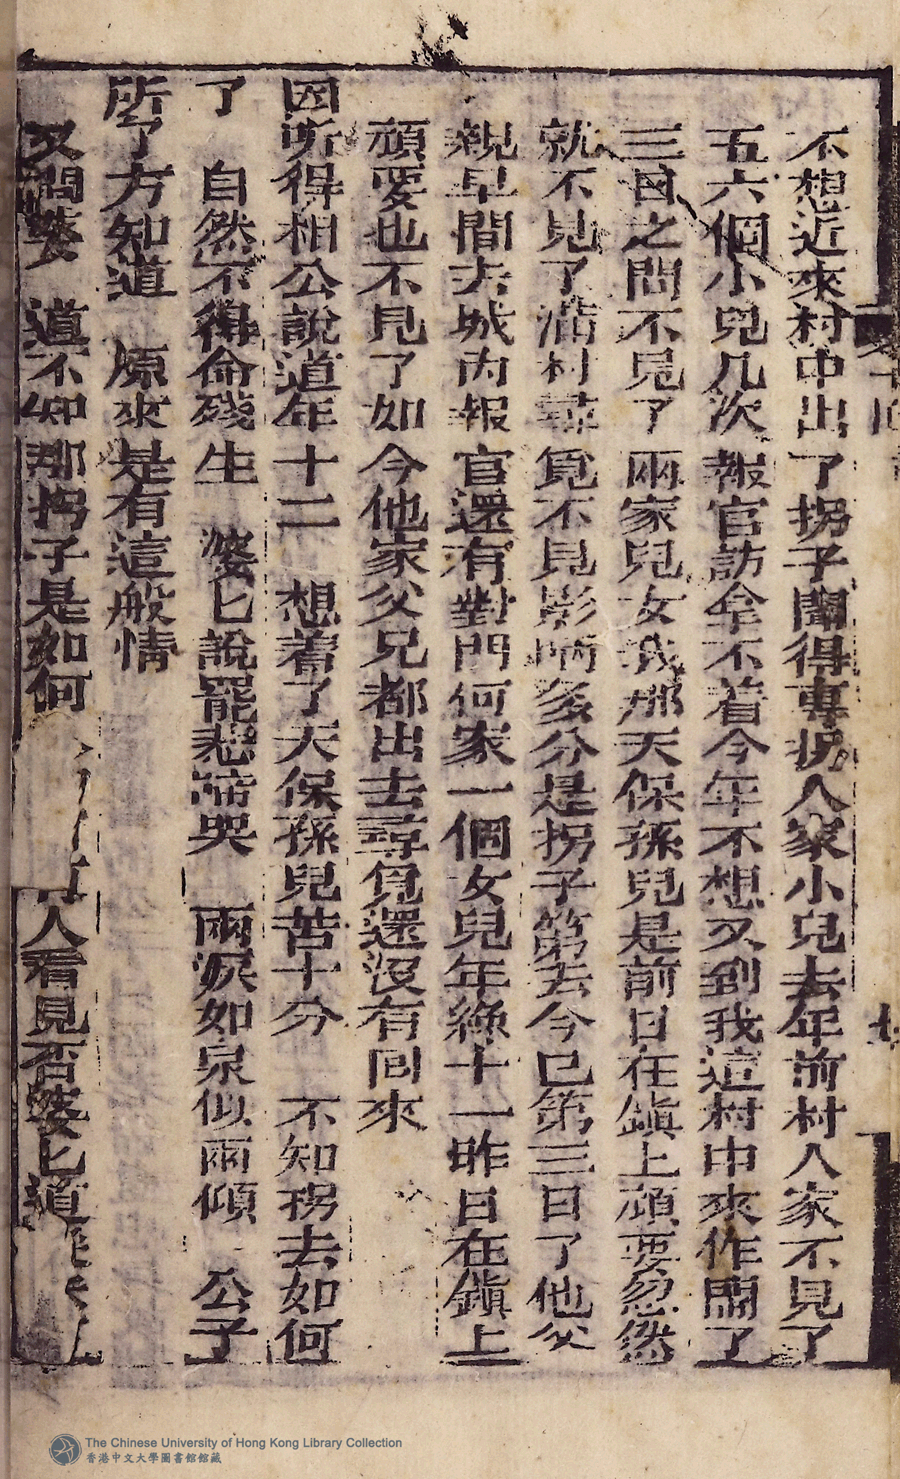 不想近來村中出了拐子聞得專拐人家小兒去年前村人家不見了
五六個小兒几次報官訪拿不着今年不想又到我這村中來作鬧了
三日之間不見了兩家兒女我那天保孫兒是前日在鎮上頑耍忽然
就不見了滿村尋覓不見影响多分是拐子弟去今已第三日了他父
親早間去城內報官還有對門何家一個女兒年纔十一昨日在鎮上
頑耍也不見了如今他家父兄都出去尋覓還沒有囘來
因听得相公說道年十二 想着了天保孫兒苦十分 不知拐去如何
了 自然不得侖殘生 婆匕說罷悲啼哭 兩淚如泉似雨傾 公子
所了方知道 原來是有這般情
又問婆 道不知那拐子是如何 人看見否婆匕道
The Chinese University of Hong Kong Library Collection
香港中文大學圖書館館藏